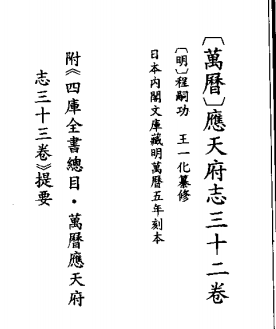 〔萬曆〕應天府志三十二卷
〔明〕程嗣功 王一化纂修
日本內閣文庫藏明萬曆五年刻本
附《四庫全書總目·萬曆應天府
志三十三卷》提要